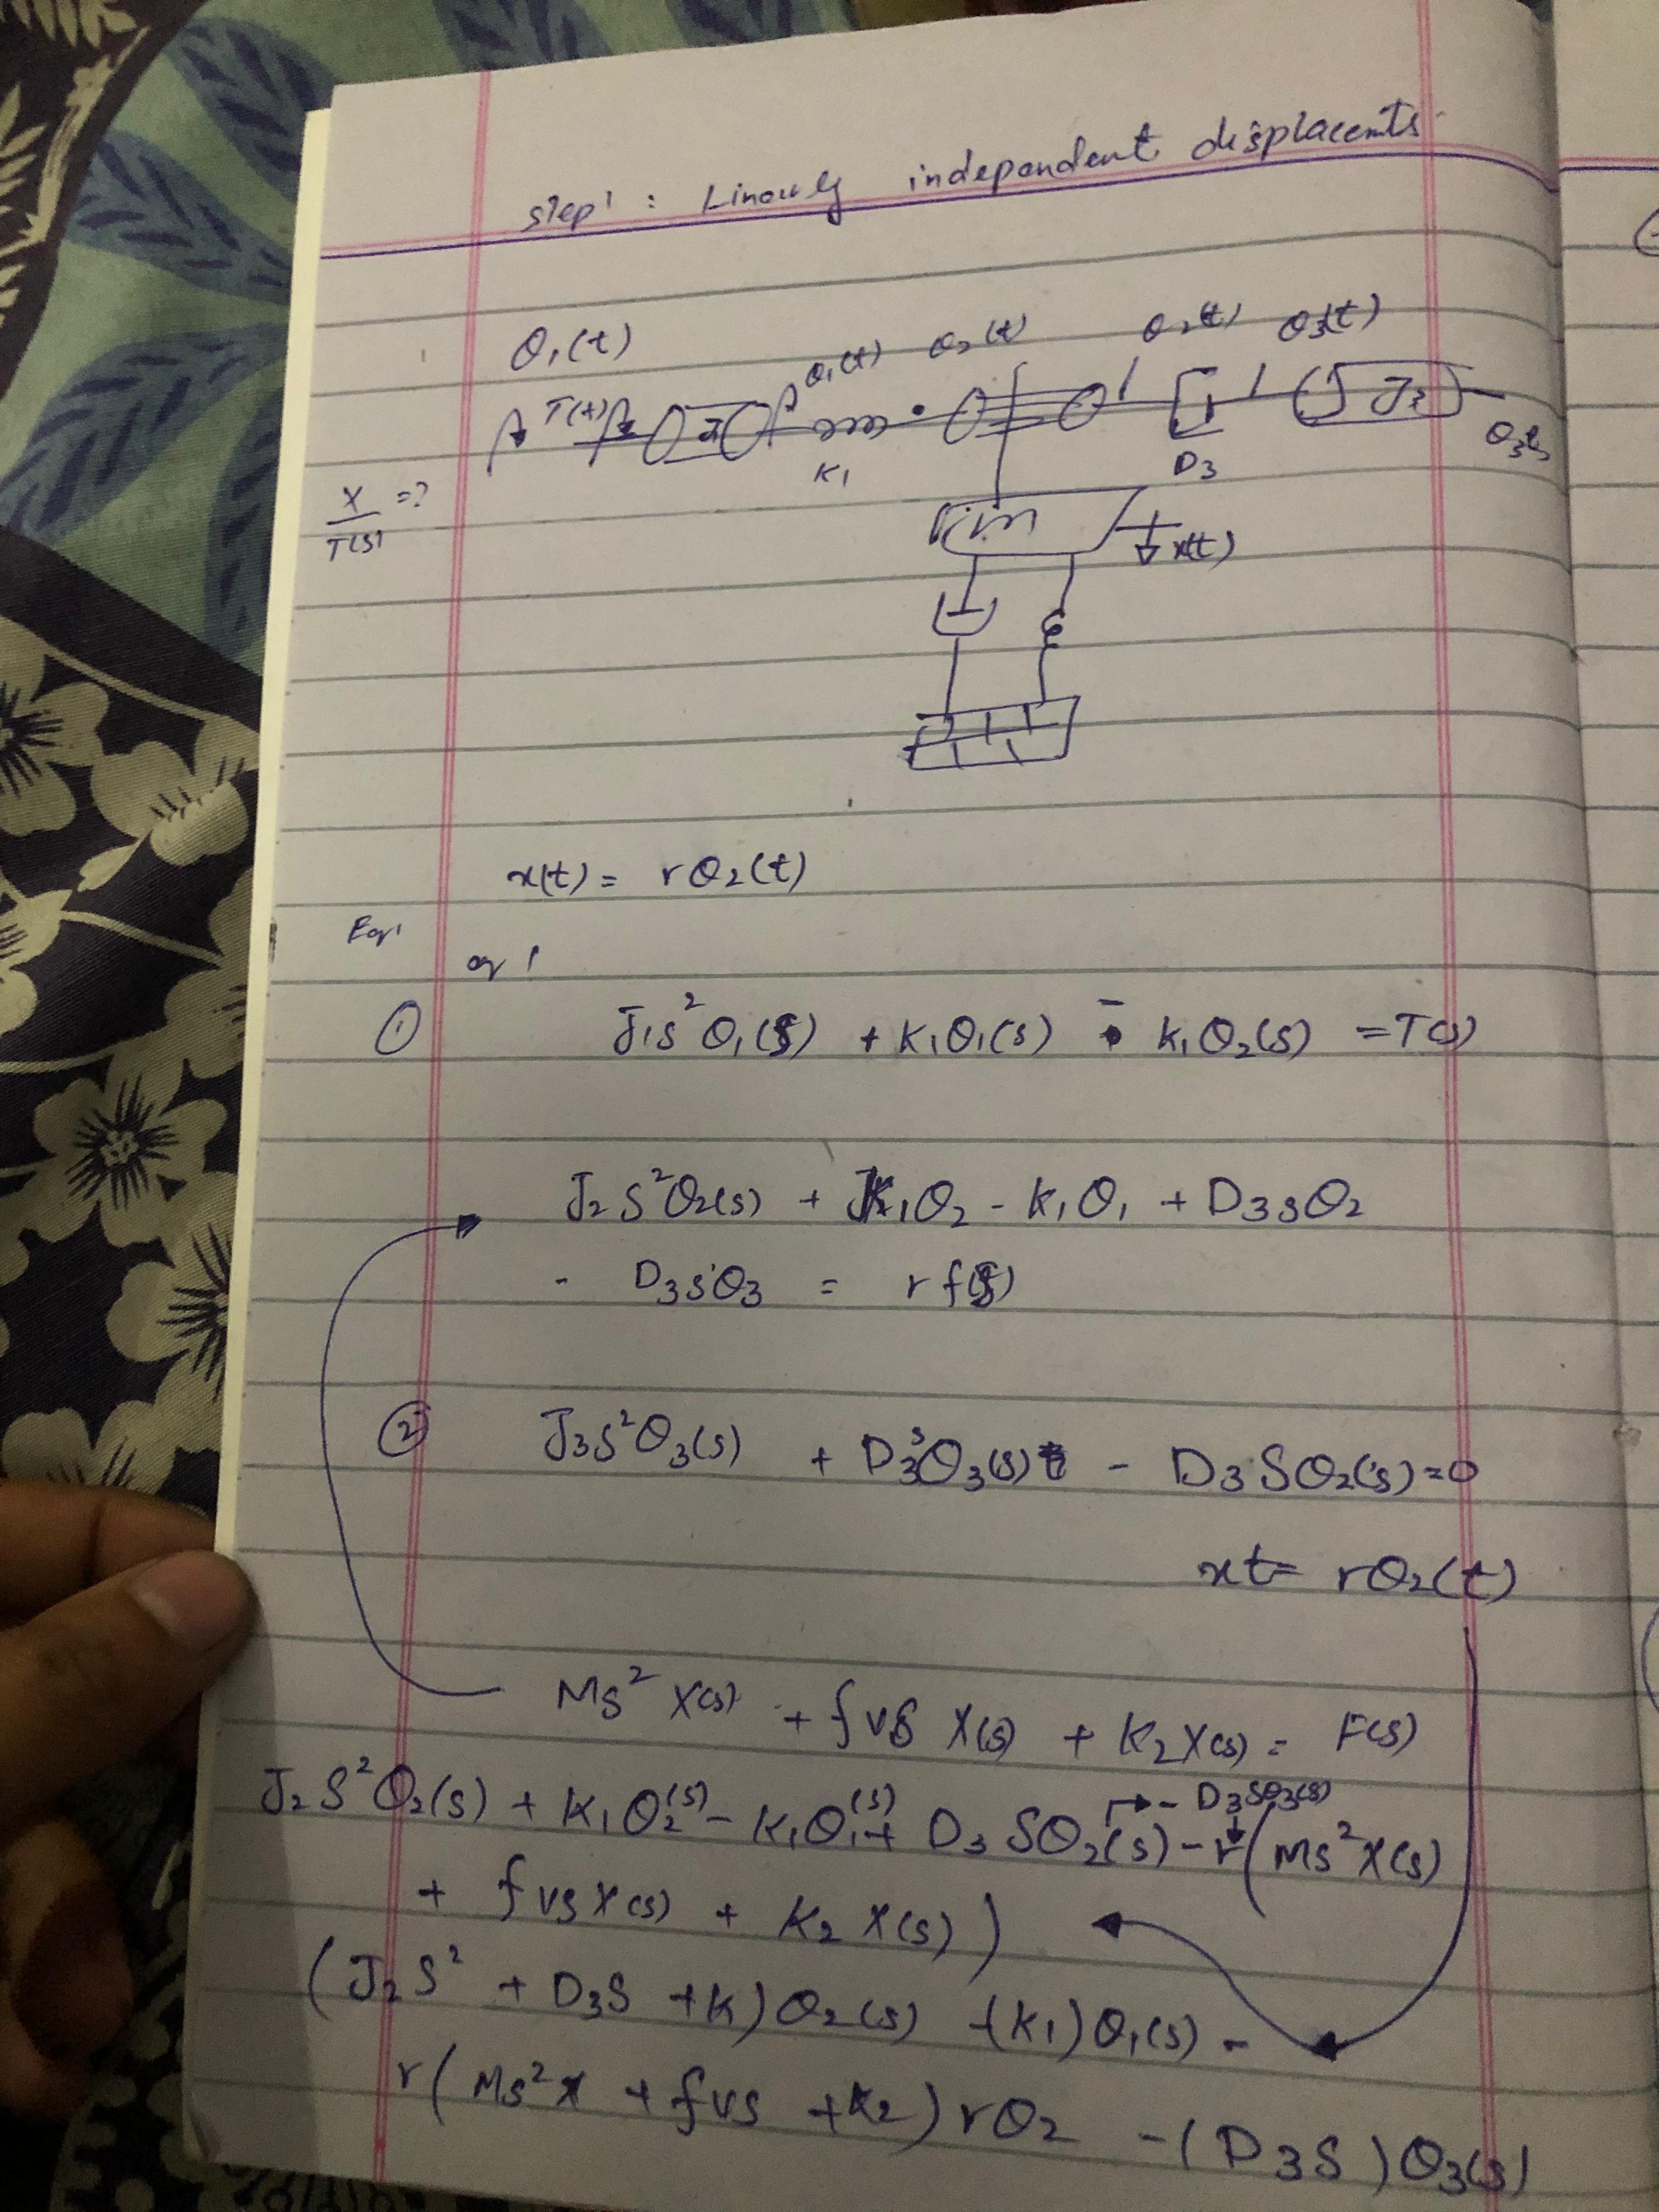 step 1 : Linearly independent displacemts.
θ₁(t)
T(t) θ₁(t) θ₂(t) θ₂(t) θ₃(t)
K₁ D₃ J₃ θ₃t
X/T(s) =?
m x(t)
x(t) = rθ₂(t)
Eq1
eq 1
① J₁s²θ₁(s) + K₁θ₁(s) - K₁θ₂(s) = T(s)
J₂s²θ₂(s) + K₁θ₂ - K₁θ₁ + D₃sθ₂
- D₃sθ₃ = rf(s)
② J₃s²θ₃(s) + D₃sθ₃(s) - D₃Sθ₂(s)=0
xt= rθ₂(t)
Ms² X(s) + fvs X(s) + K₂X(s) = F(s)
J₂S²θ₂(s) + K₁θ₂(s) - K₁θ₁(s) + D₃Sθ₂(s) - D₃Sθ₃(s) - r(Ms²X(s)
+ fvsX(s) + K₂X(s))
(J₂S² + D₃S +K)θ₂(s) -(K₁)θ₁(s) -
r(Ms²x + fvs +K₂)rθ₂ -(D₃S)θ₃(s)